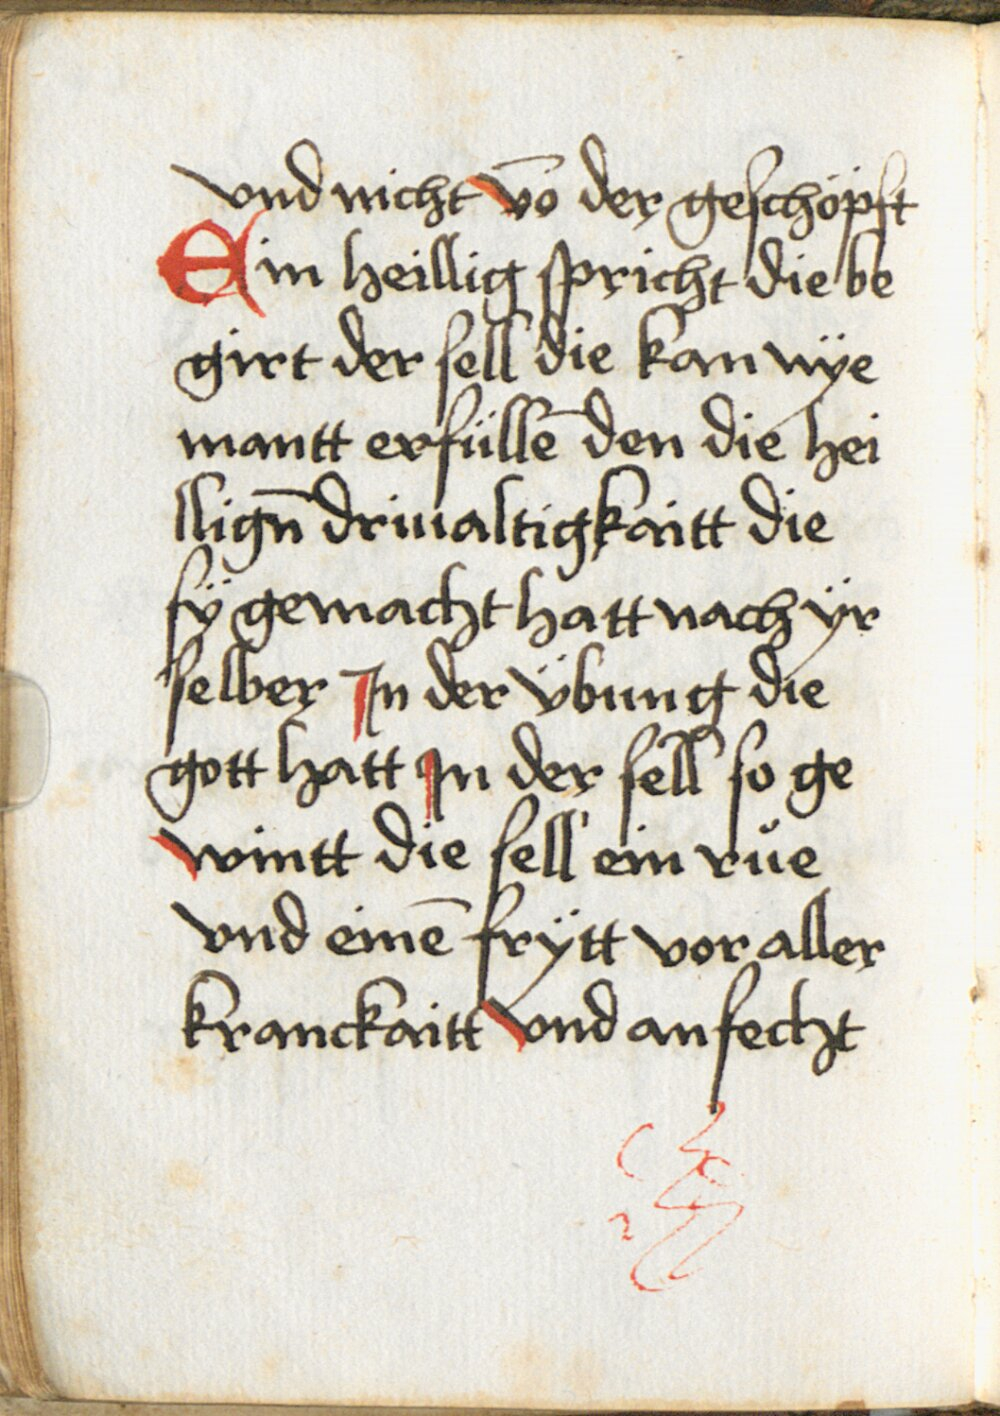 vnd nicht vō der geschöpft
Ein heillig spricht die be
girt der sell die kan nÿe
mantt erfüllē den die hei
llign̄ driualtigkaitt die
sÿ gemacht hatt nach ÿr
selber In der übung die
gott hatt In der sell so ge
wintt die sell ein růe
vnd einē frÿtt vor aller
kranckaitt vnd anfecht